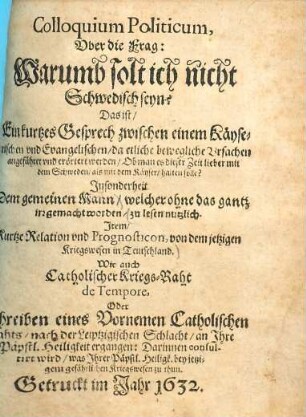 Colloquium Politicum,
Vber die Frag:
Warumb solt ich nicht
Schwedisch seyn?
Das ist/
Ein kurtzes Gesprech zwischen einem Käyse-
rischen vnd Evangelischen/ da etliche bewegliche Vrsachen
angeführet vnd erörtert werden/ Ob man es dieser Zeit lieber mit
dem Schweden/ als mit dem Käyser/ halten solle?
Insonderheit
Dem gemeinen Mann/ welcher ohne das gantz
irr gemacht worden/ zu lesen nutzlich.
Item/
Kurtze Relation vnd Prognosticon, von dem jetzigen
Kriegswesen in Teutschland.
Wie auch
Catholischer Kriegs-Raht
de Tempore.
Oder
hreiben eines Vornemen Catholischen
hts/ nach der Leiptzigischen Schlacht/ an Ihre
Päpstl. Heiligkeit ergangen: Darinnen consul-
tirt wird/ was Ihrer Päpstl. Heiligk. bey jetzi-
gem gefährlichen Kriegswesen zu thun.
Getruckt im Jahr 1632.